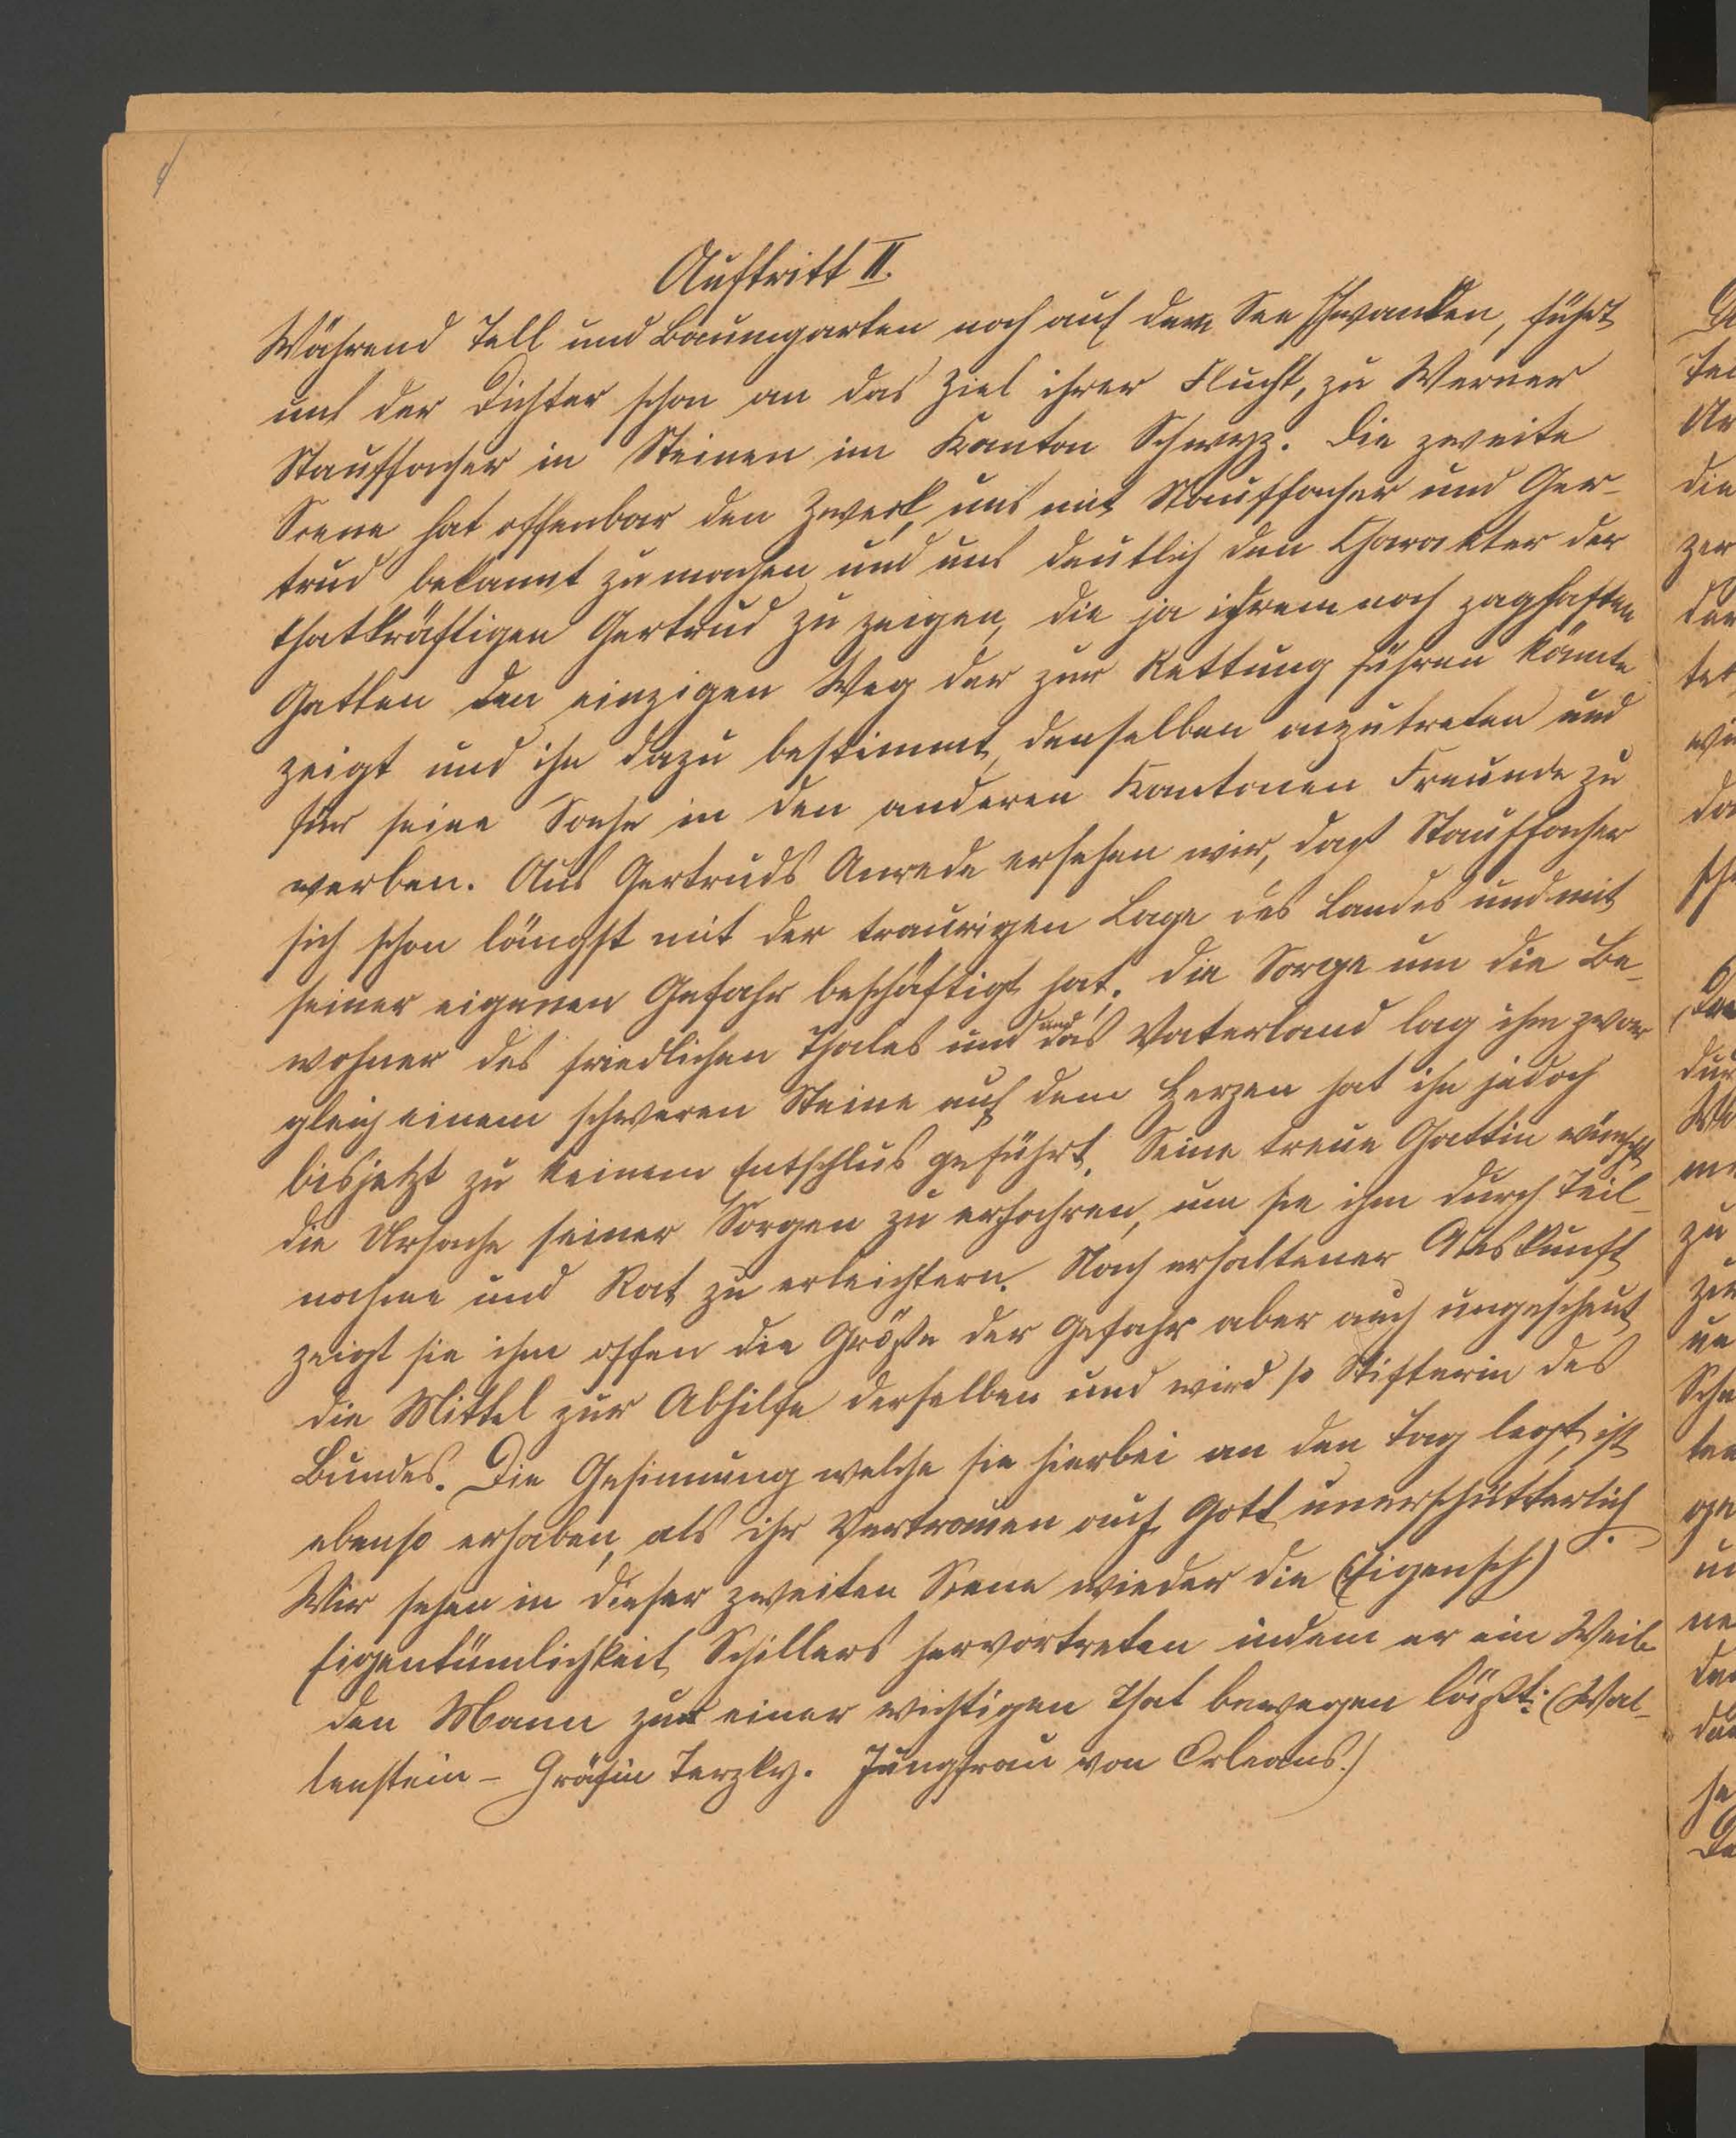 Auftritt II.
Während Tell und Baumgarten noch auf dem See schwanken, führt
uns der Dichter schon an das Ziel ihrer Flucht, zu Werner
Stauffacher in Steinen im Kanton Schwyz. Die zweite
Scene hat offenbar den Zweck, uns mit Stauffacher und Ger-
trud bekannt zu machen und uns deutlich den Charakter der
thatkräftigen Gertrud zu zeigen, die ja ihrem noch zaghaften
Gatten den einzigen Weg der zur Rettung führen könnte
zeigt und ihn dazu bestimmt, denselben anzutreten und
für seine Sache in den anderen Kantonen Freunde zu
werben. Aus Gertruds Anrede ersehen wir, daß Stauffacher
sich schon längst mit der traurigen Lage des Landes und mit
seiner eigenen Gefahr beschäftigt hat. Die Sorge um die Be-
wohner des friedlichen Thales und um das Vaterland lag ihm zwar
gleich einem schweren Steine auf dem Herzen hat ihn jedoch
bisjetzt zu keinem Entschlus geführt. Seine treue Gattin wünscht
die Ursache seiner Sorgen zu erfahren, um sie ihm durch Teil-
nahme und Rat zu erleichtern. Nach erhaltener Auskunft
zeigt sie ihm offen die Größe der Gefahr aber auch ungescheut
die Mittel zur Abhilfe derselben und wird so Stifterin des
Bundes. Die Gesinnung welche sie hierbei an den Tag legt, ist
ebenso erhaben, als ihr Vertrauen auf Gott unerschütterlich.
Wir sehen in dieser zweiten Scene wieder die (Eigensch)
Eigentümlichkeit Schillers hervortreten indem er ein Weib
den Mann zu einer wichtigen That bewegen läßt: (Wal-
lenstein - Gräfin Terzky. Jungfrau von Orleans.)